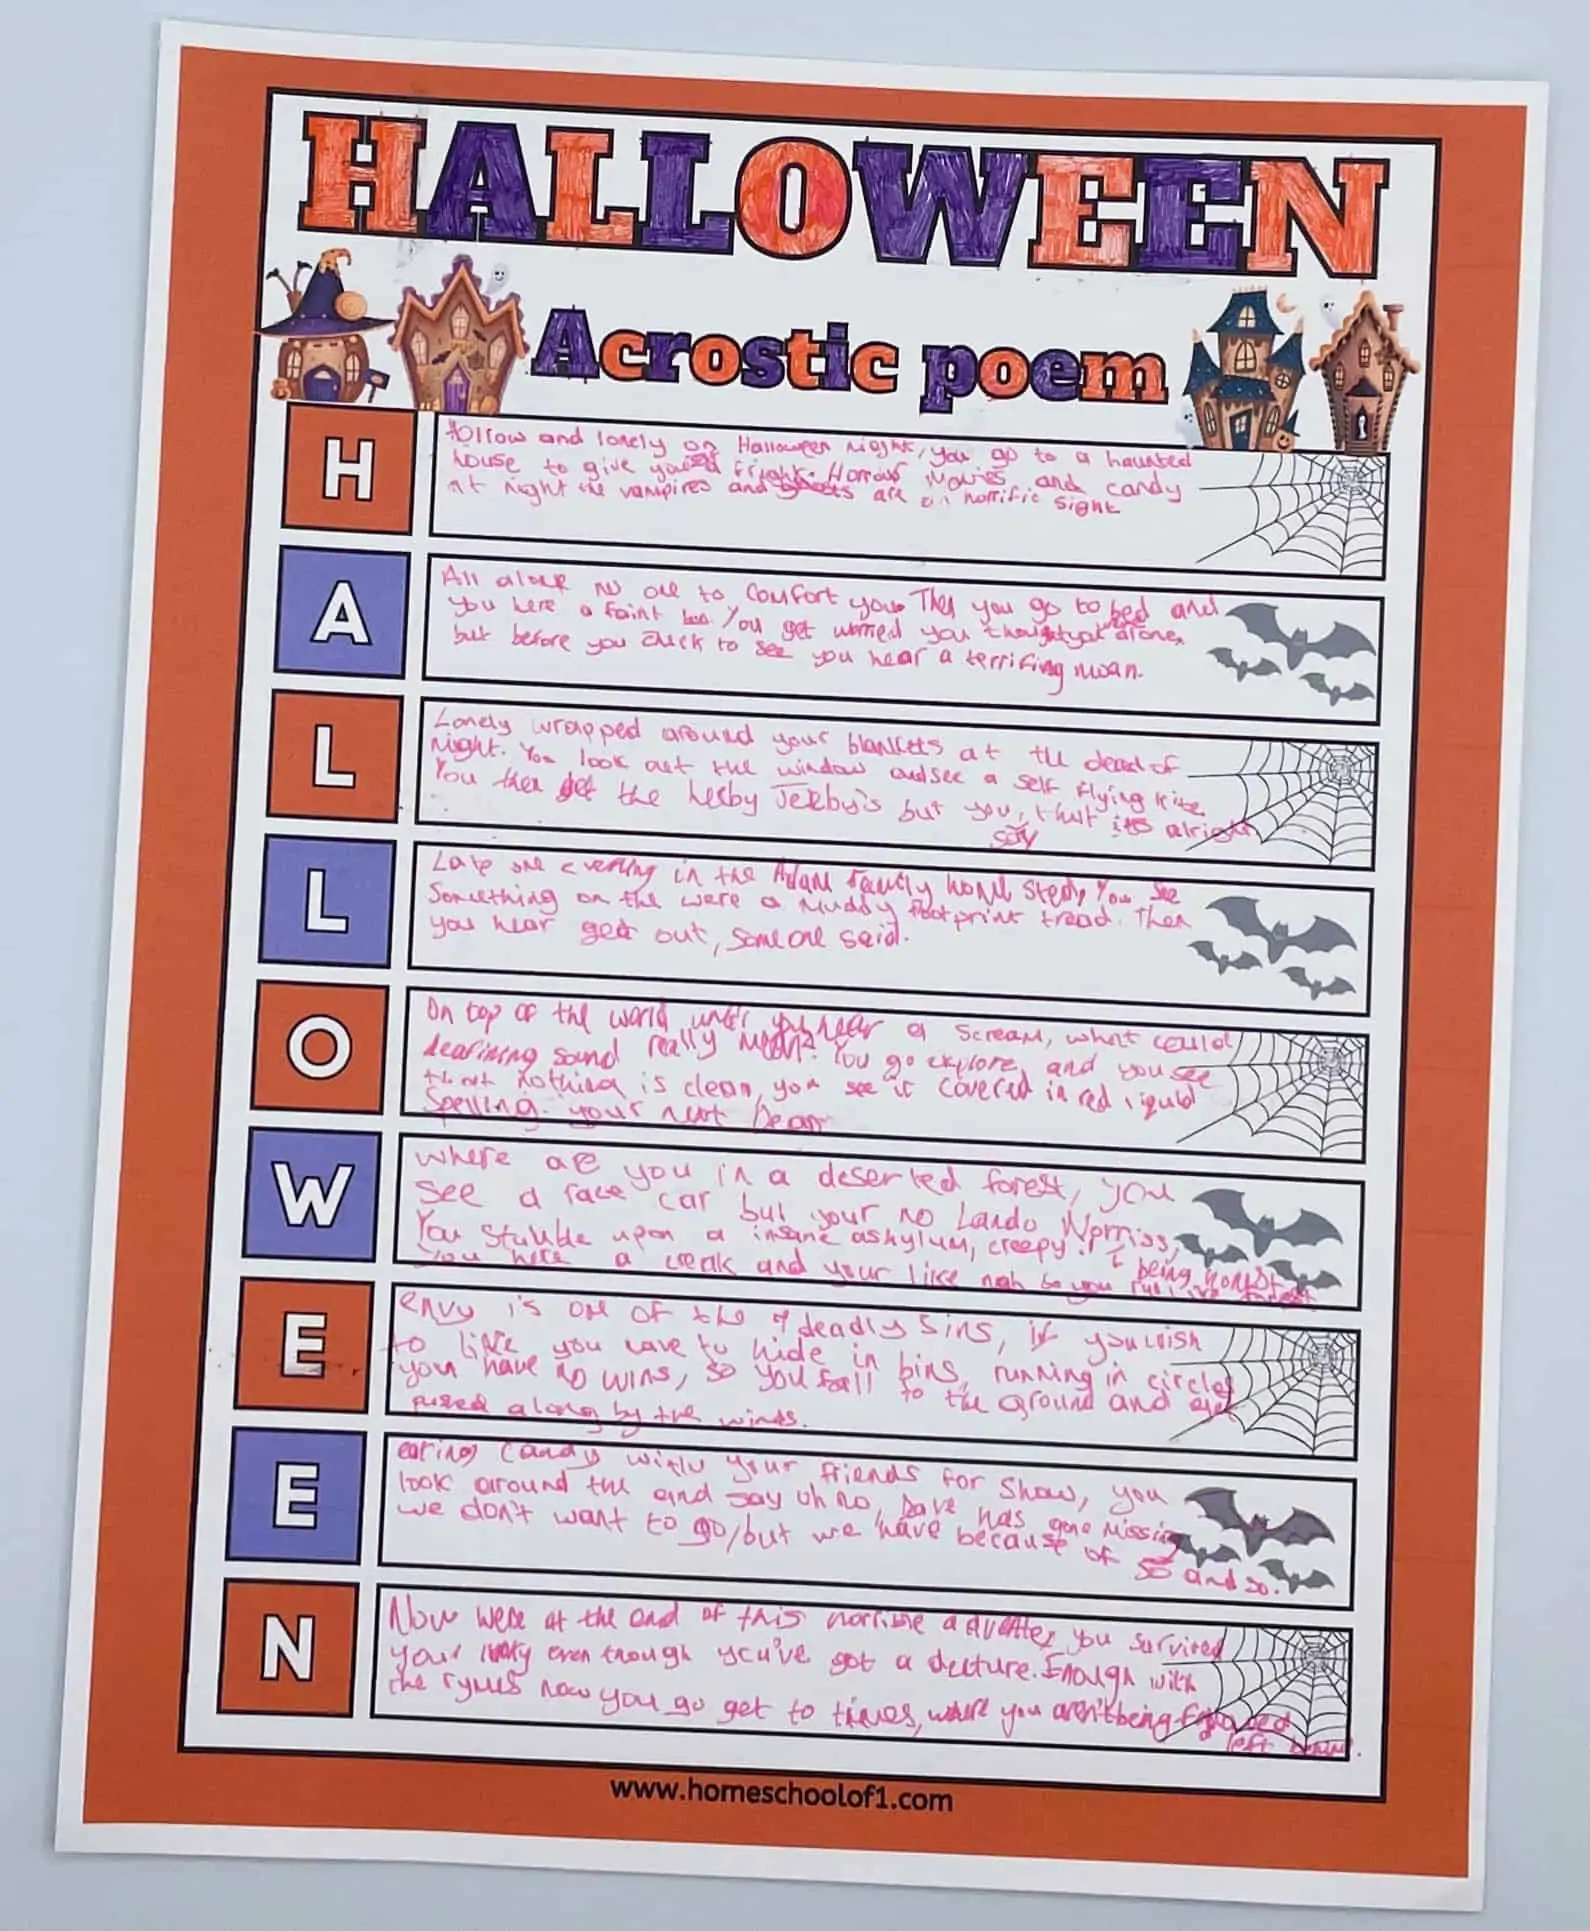 HALLOWEEN
Acrostic poem
H
Hollow and lonely on Halloween night, you go to a haunted
house to give you a fright. Horror Movies and candy
at night the vampires and ghosts are an horrific sight
A
All alone no one to comfort you. Then you go to bed and
you here a faint You get worried you thought you were alone,
but before you chick to see you hear a terrifing moan.
L
Lonely wrapped around your blankets at the dead of
night. You look out the window and see a self flying kite.
You then get the heeby Jeeby's but you, that its alright
say
L
Late one evening in the Adam Family home sted, You see
Something on the were a muddy footprint tread. Then
you hear get out, someone said.
O
On top of the world until you hear a scream, what could
deafining sound really mean? You go explore and you see
that nothing is clean, you see it covered in red liquid
Spelling. your next
W
where are you in a deserted forest, you
see a race car but your no Lando Norriss,
You stumble upon a insane ashylum, creepy! I being honest
You here a creak and your like nah so you run
E
envy is one of the 7 deadly sins, if you wish
to live you have to hide in bins, running in circles
you have no wins, so you fall to the ground and
along by the winds.
E
eating candy with your friends for show, you
look around the and say uh no, Dave has gone missing
we don't want to go, but we have because of
so and so.
N
Now were at the end of this adventer, you survived
your lucky even though you've got a . Enough with
the rymes now you go get to times, where you aren't being
left
www.homeschoolof1.com